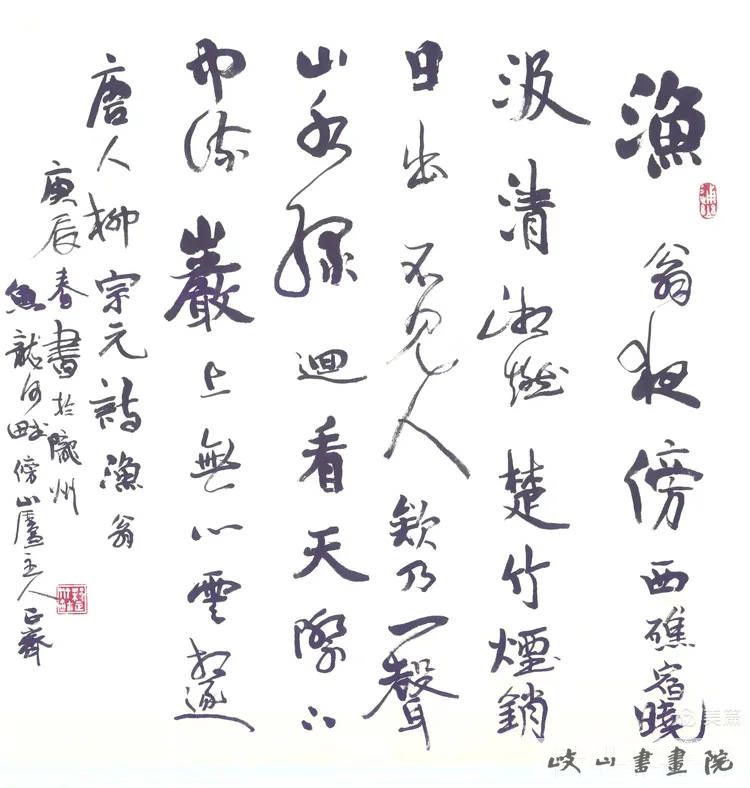 漁翁夜傍西礁宿曉
汲清湘燃楚竹煙銷
日出不見人欸乃一聲
山水綠迴看天際下
中流巖上無心雲相逐
唐人柳宗元詩漁翁
庚辰春書於隴州
魚龍河畔傍山廬主人正齋
美篇
岐山書畫院